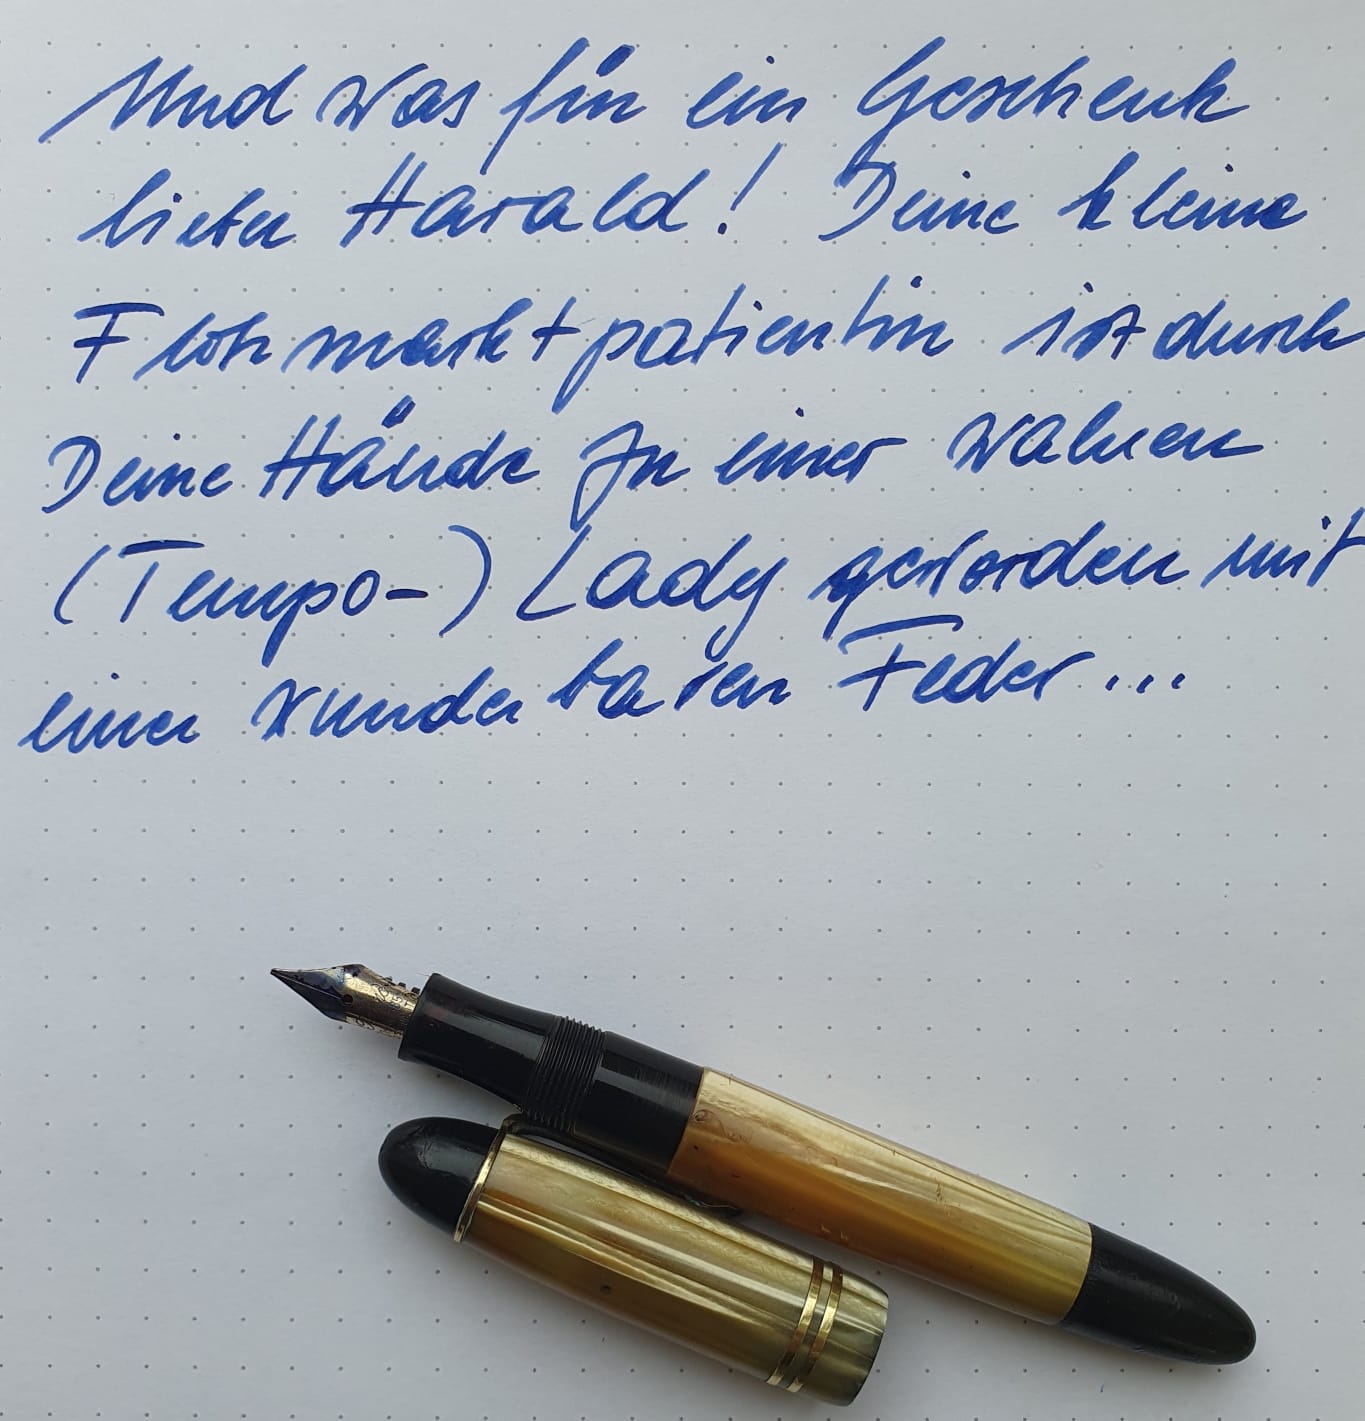 Und was für ein Geschenk
lieber Harald! Deine kleine
Flohmarktpatientin ist durch
Deine Hände zu einer wahren
(Tempo-) Lady geworden mit
einer wunderbaren Feder...